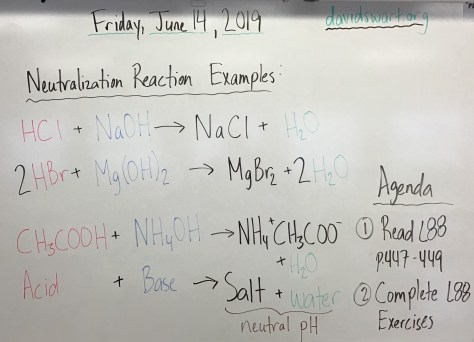 Friday, June 14, 2019
davidswart.org
Neutralization Reaction Examples:
HCl + NaOH → NaCl + H₂O
2HBr + Mg(OH)₂ → MgBr₂ + 2H₂O
CH₃COOH + NH₄OH → NH₄⁺CH₃COO⁻
+ H₂O
Acid + Base → Salt + water
neutral pH
Agenda
① Read L88
p447-449
② Complete L88
Exercises